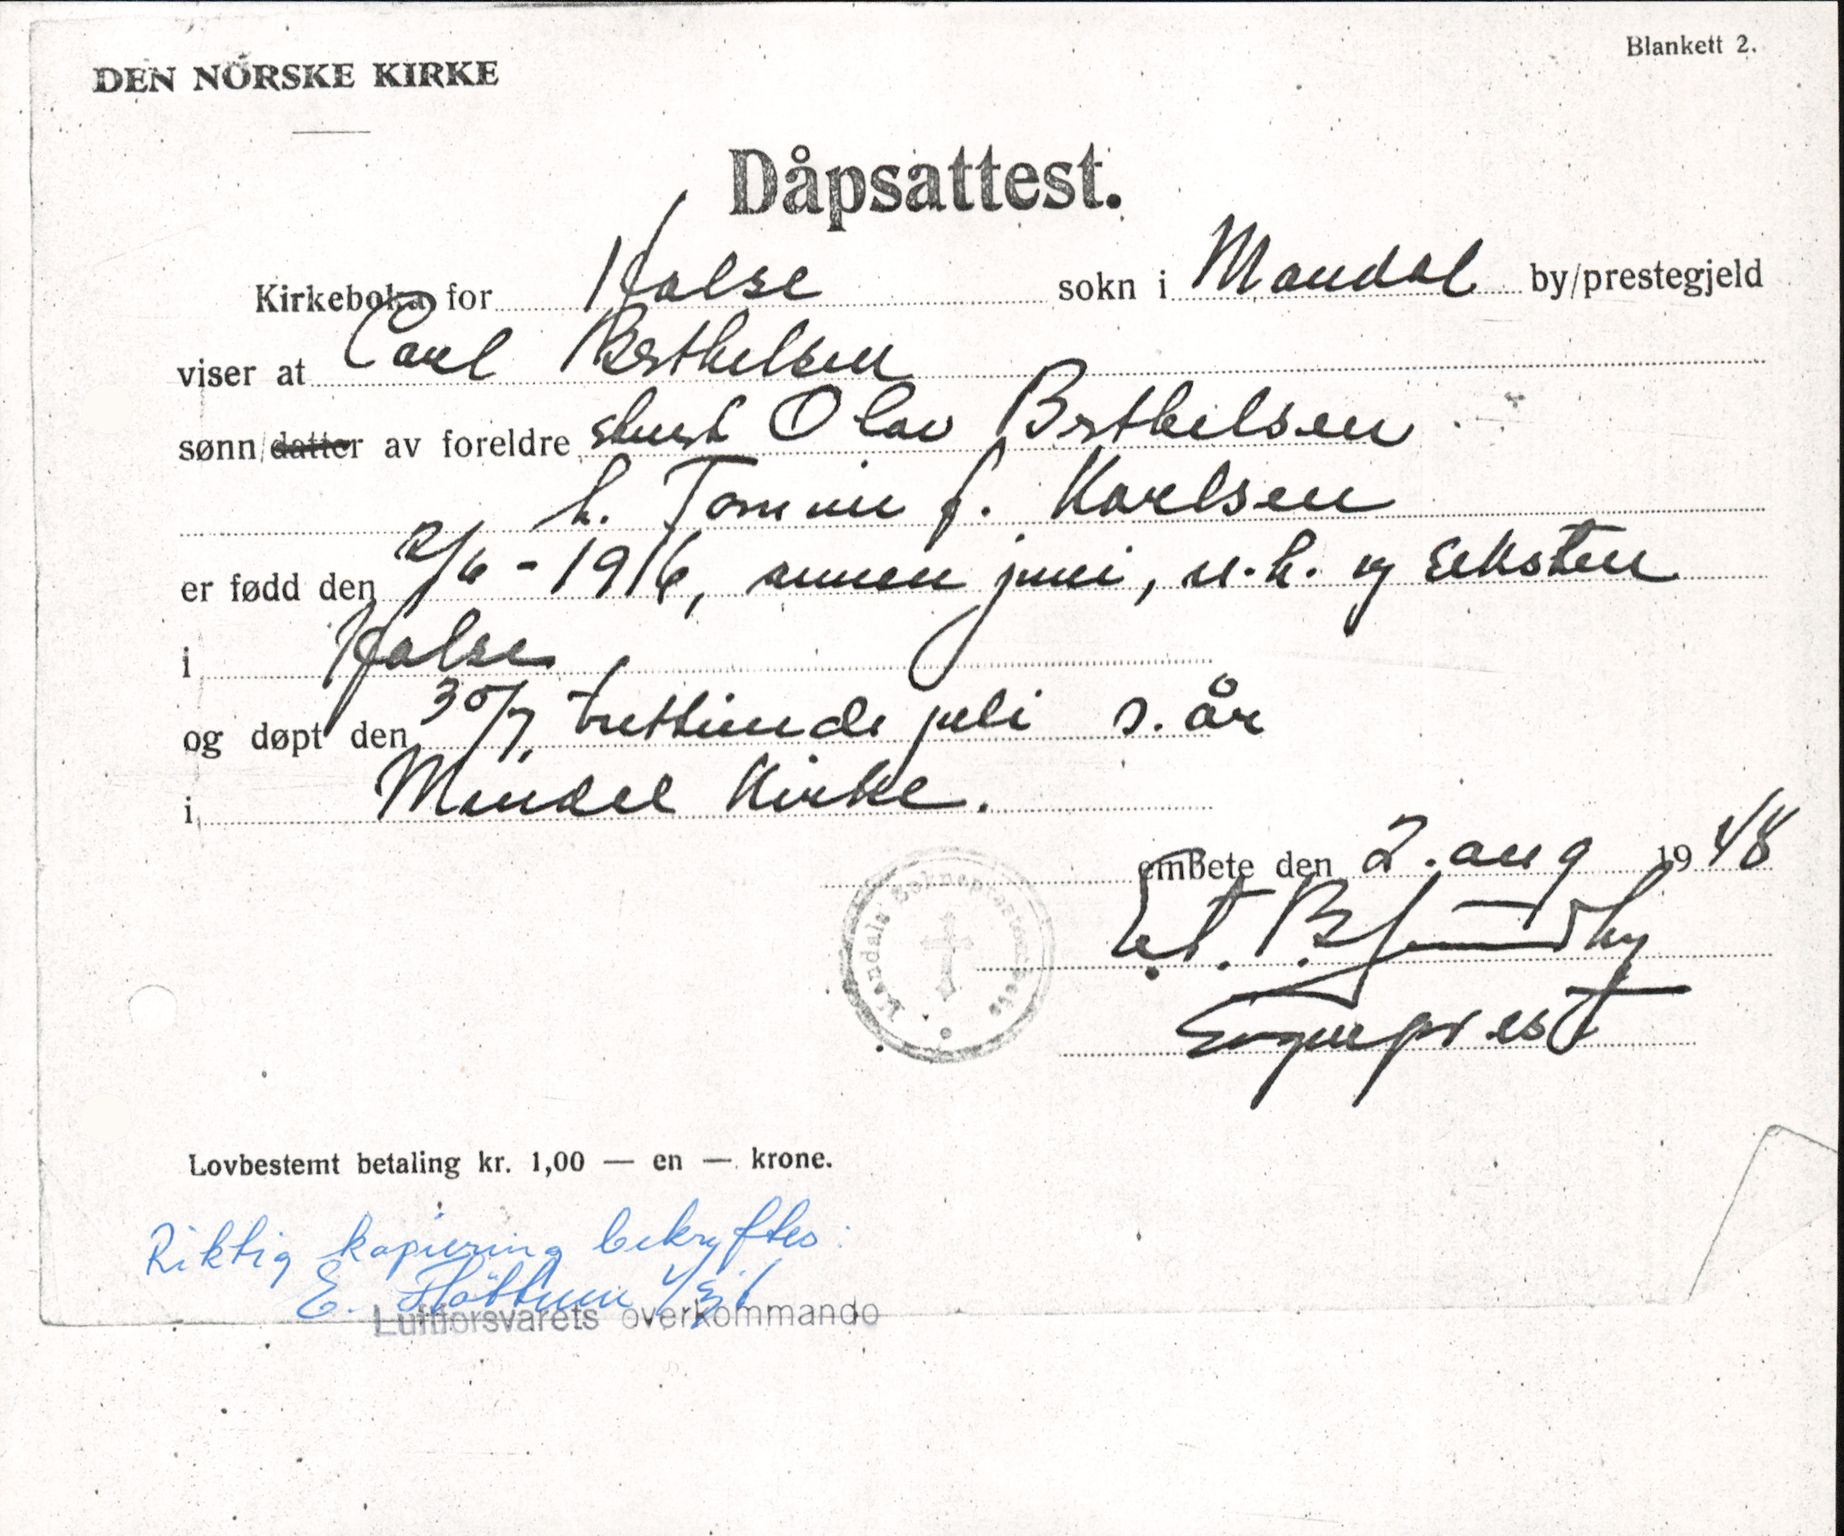 Blankett 2.
DEN NORSKE KIRKE
Dåpsattest.
Kirkeboka for Halse sokn i Mandal by/prestegjeld
viser at Carl Berthelsen
sønn/datter av foreldre Olav Berthelsen
h. Tomine f. Karlsen
er fødd den 2/6 - 1916, annen juni, n.h. og seksten
i Halse
og døpt den 30/7 trettiende juli s. år
i Mandal Kirke.
embete den 2. aug 1948
Mandals Sokneprestembete
Sogneprest
Lovbestemt betaling kr. 1,00 — en — krone.
Riktig kopiering bekryftes:
E.
Luftforsvarets overkommando